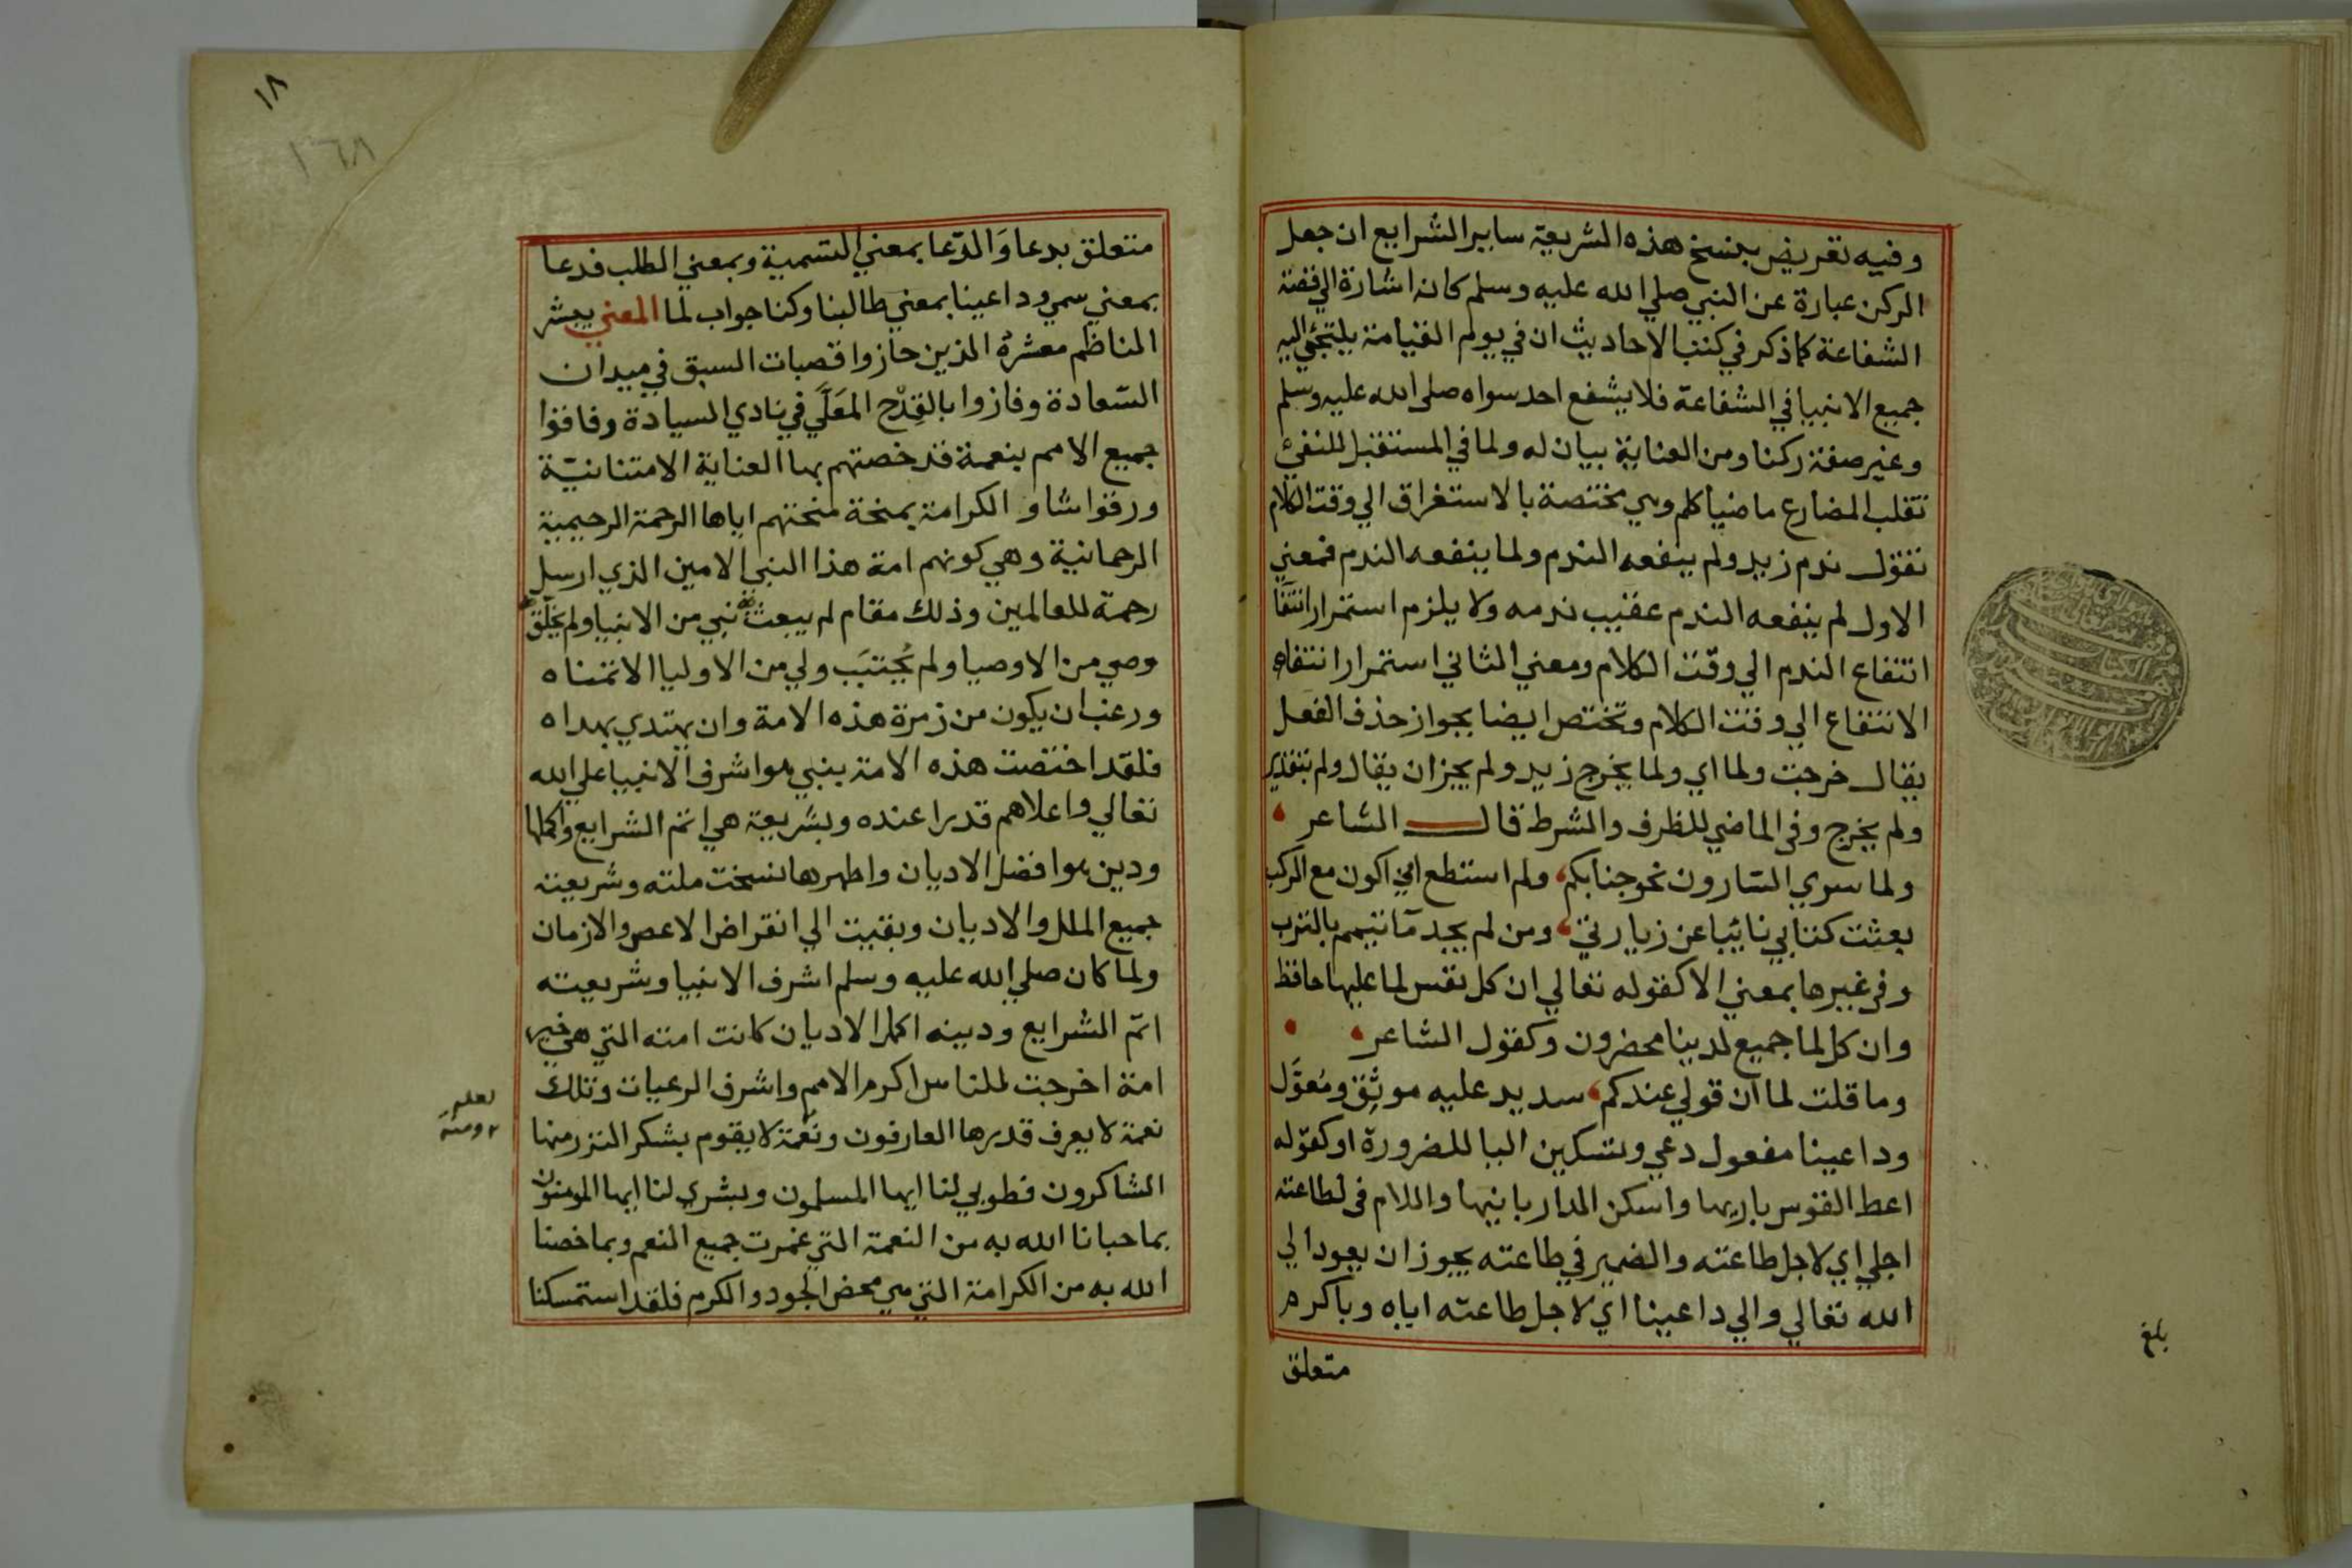 وفيه تعريض بنسخ هذه الشريعة ساير الشرايع ان جعل
الركن عبارة عن النبي صلي الله عليه وسلم كانه اشارة الي قصة
الشفاعة كما ذكر في كتب الاحاديث ان في يوم القيامة يلتجئ اليه
جميع الانبيا في الشفاعة فلا يشفع احد سواه صلى الله عليه وسلم
وغير صفة ركنا ومن العناية بيان له ولما في المستقبل للنفي
تقلب المضارع ماضيا كلم وهي مختصة بالاستغراق الي وقت الكلام
تقول ندم زيد ولم ينفعه الندم ولما ينفعه الندم فمعني
الاول لم ينفعه الندم عقيب ندمه ولا يلزم استمرار انتفا
انتفاع الندم الي وقت الكلام ومعني الثاني استمرار انتفاء
الانتفاع الي وقت الكلام وتختص ايضا بجواز حذف الفعل
يقال خرجت ولما اي ولما يخرج زيد ولم يجز ان يقال ولم بتقدير
ولم يخرج وفي الماضي للظرف والشرط قال الشاعر
ولما سري السارون نحو جنابكم، ولم استطع اني اكون مع الركب
بعثت كتابي نائبا عن زيارتي، ومن لم يجد مآ تيمم بالترب
وفي غيرها بمعني الا كقوله تعالي ان كل نفس لما عليها حافظ
وان كل لما جميع لدينا محضرون وكقول الشاعر
وما قلت لما ان قولي عندكم، سديد عليه موثِق ومُعوَّل
وداعينا مفعول دعي وبتسكين اليا للضرورة او كقوله
اعط القوس باريها واسكن الدار بانيها واللام في لطاعته
اجلي اي لاجل طاعته والضمير في طاعته يجوز ان يعود الي
الله تعالي والي داعينا اي لاجل طاعته اياه وباكرم
متعلق
بلغ
١٨
١٦٨
متعلق بدعا وَالدّعا بمعني التسمية وبمعني الطلب فدعا
بمعني سمي وداعينا بمعني طالبنا وكنا جواب لما المعني يبشر
الناظم معشرهُ الذين حازوا قصبات السبق في ميدان
السّعادة وفازوا بالقِدْح المعَلَّي في نادي السيادة وفاقوا
جميع الامم بنعمة قد خصتهم بها العناية الامتنانيّة
ورقوا شاو الكرامة بمنحة منحتهم اياها الرحمة الرحيمية
الرحمانية وهي كونهم امة هذا النبي الامين الذي ارسل
رحمة للعالمين وذلك مقام لم يبعث نبي من الانبيا ولم يخلق
وصي من الاوصيا ولم يُجتبَ ولي من الاوليا الا تمناه
ورغب ان يكون من زمرة هذه الامة وان يهتدي بهداه
فلقد اختصت هذه الامة بنبي هو اشرف الانبيا علي الله
تعالي واعلاهم قدرا عنده وبشريعة هي اتم الشرايع واكملها
ودين هو افضل الاديان واطهرها نسخت ملته وشريعته
جميع الملل والاديان وبقيت الي انقراض الاعصر والازمان
ولما كان صلي الله عليه وسلم اشرف الانبيا وشريعته
اتم الشرايع ودينه اكمل الاديان كانت امته التي هي خير
امة اخرجت للناس اكرم الامم واشرف الرعيات وتلك
نعمة لا يعرف قدرها العارفون ونعمة لا يقوم بشكر النزر منها
الشاكرون فطوبي لنا ايها المسلمون وبشري لنا ايها المومنون
بما حبانا الله به من النعمة التي غمرت جميع النعم وبما خصنا
الله به من الكرامة التي هي محض الجود والكرم فلقد استمسكنا
لعله
ومنة